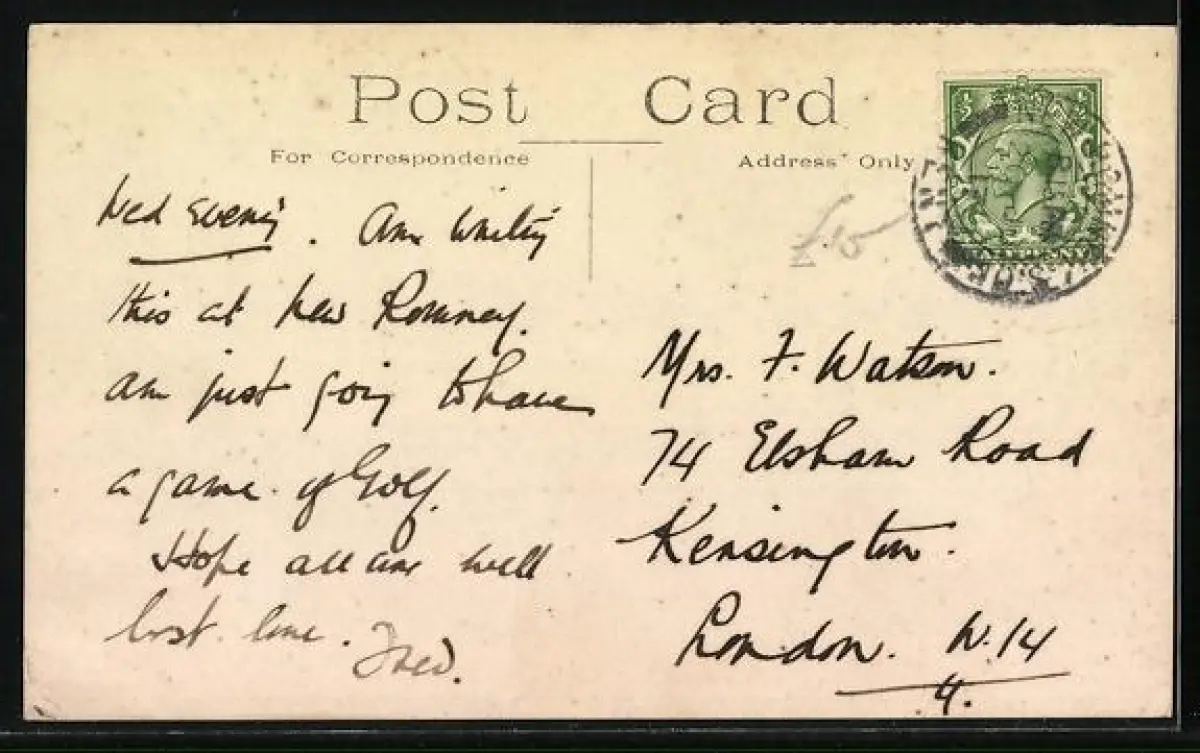 Post Card
For Correspondence
Address Only
£15
Wed Evening. Am writing
this at New Romney.
am just going to have
a game of Golf.
Hope all are well
best love. Fred.
Mrs. F. Watson.
74 Elsham Road
Kensington.
London. W.14
4.